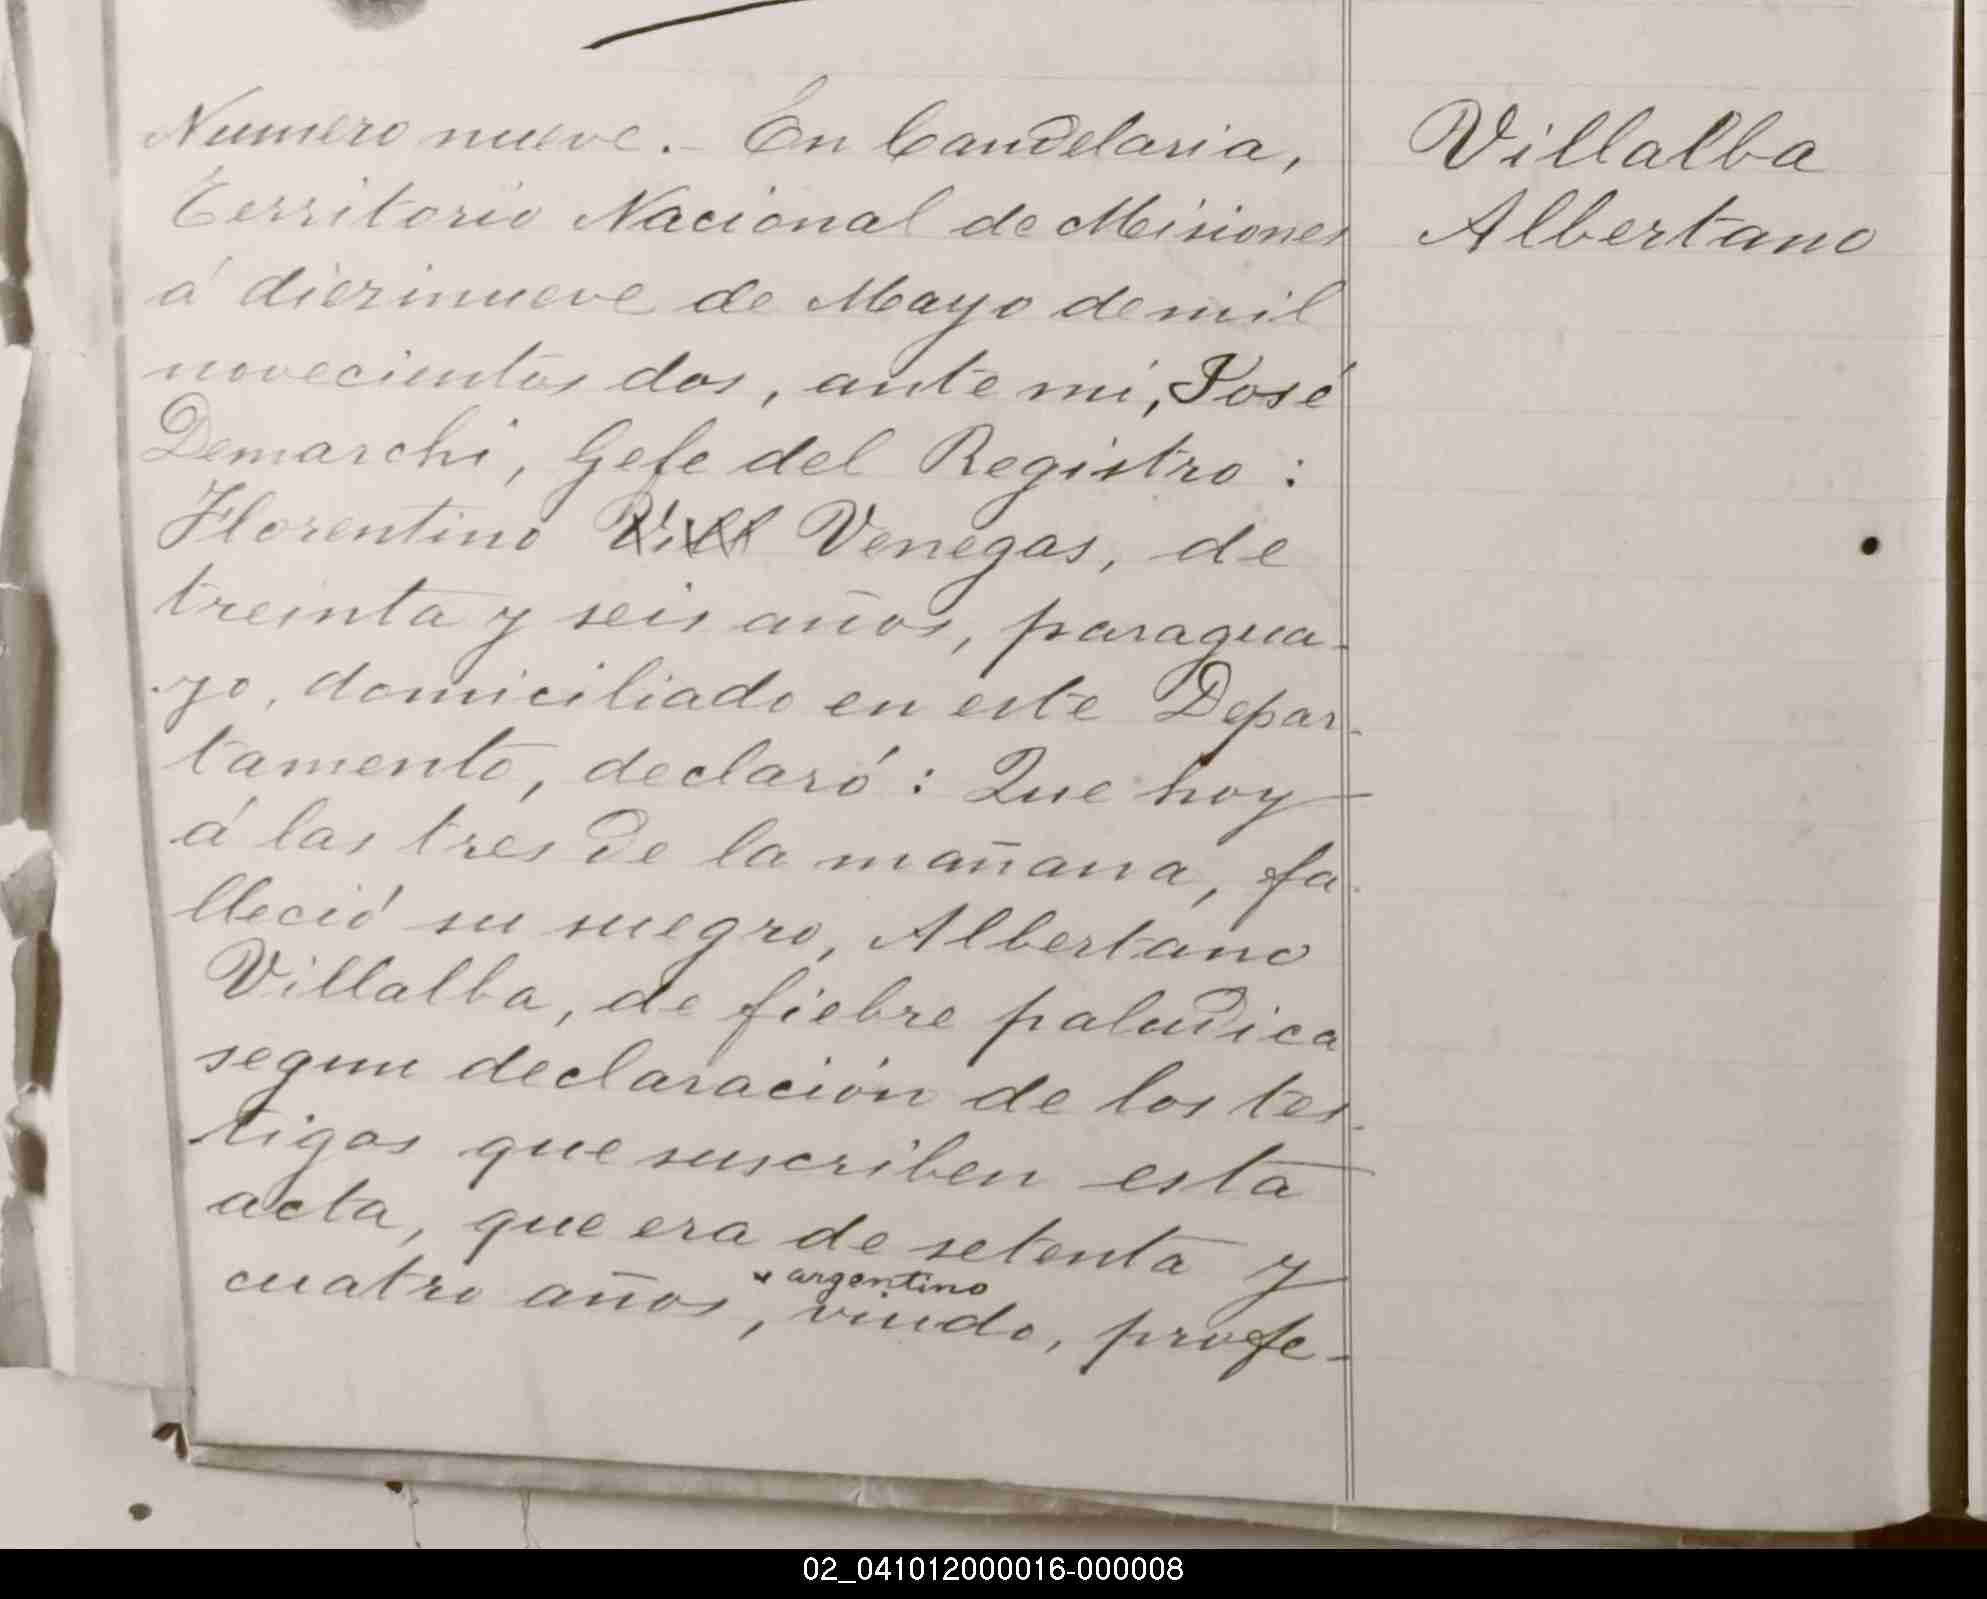 Numero nueve. - En Candelaria,
Territorio Nacional de Misiones
á diezinueve de Mayo de mil
novecientos dos, ante mi, José
Demarchi, Gefe del Registro :
Florentino Vill Venegas, de
treinta y seis años, paragua-
yo, domiciliado en este Depar-
tamento, declaró : Que hoy
á las tres de la mañana, fa-
lleció su suegro, Albertano
Villalba, de fiebre paludica
segun declaración de los tes-
tigos que suscriben esta
acta, que era de setenta y
argentino
cuatro años, viudo, profe-
Villalba
Albertano
02_041012000016-000008